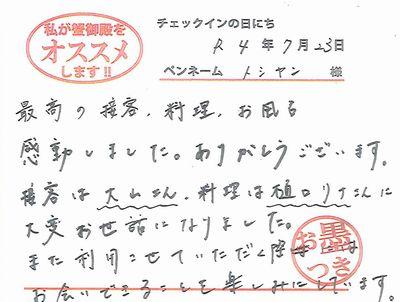 私が蟹御殿を
オススメ
します!!
チェックインの日にち
R4年7月23日
ペンネーム トシヤン 様
最高の接客、料理、お風呂
感動しました。ありがとうございます。
接客は大山さん、料理は樋口リナさんに
大変お世話になりました。
また利用させていただく際には
お会いできることを楽しみにしています。
お墨つき